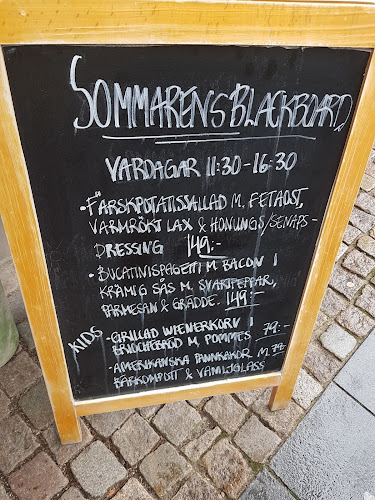 SOMMARENS BLACKBOARD
VARDAGAR 11:30-16:30
• FÄRSKPOTATISSALLAD M. FETAOST,
VARMRÖKT LAX & HONUNGS/SENAPS-
DRESSING 149:-
• BUCATINISPAGETTI M. BACON I
KRÄMIG SÅS M. SVARTPEPPAR,
PARMESAN & GRÄDDE. 149:-
KIDS
• GRILLAD WIENERKORV I 79:-
BRIOCHEBRÖD M. POMMES
• AMERIKANSKA PANNKAKOR M. 79:-
BÄRKOMPOTT & VANILJGLASS